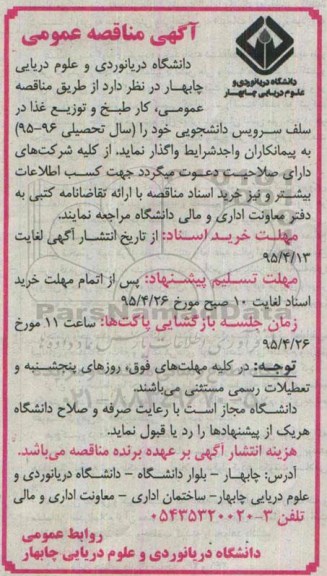 آگهی مناقصه عمومی
دانشگاه دریانوردی و
علوم دریایی چابهار
دانشگاه دریانوردی و علوم دریایی
چابهـار در نظر دارد از طریق مناقصه
عمومـی، کار طبـخ و توزیـع غذا در
سلف سرویس دانشجویی خود را (سال تحصیلی ۹۶-۹۵)
به پیمانکاران واجدشرایط واگذار نماید. از کلیه شرکت‌های
دارای صلاحیـت دعـوت میگردد جهت کسـب اطلاعات
بیشـتر و نیز خرید اسناد مناقصه با ارائه تقاضانامه کتبی به
دفتر معاونت اداری و مالی دانشگاه مراجعه نمایند.
مهلـت خریـد اسـناد: از تاریخ انتشـار آگهی لغایت
۹۵/۴/۱۳
مهلت تسـلیم پیشـنهاد: پس از اتمام مهلت خرید
اسناد لغایت ۱۰ صبح مورخ ۹۵/۴/۲۶
زمان جلسـه بازگشایی پاکت‌ها: ساعت ۱۱ مورخ
۹۵/۴/۲۶
توجـه: در کلیه مهلت‌های فوق، روزهای پنجشـنبه و
تعطیلات رسمی مستثنی می‌باشند.
دانشـگاه مجاز اسـت با رعایت صرفه و صلاح دانشگاه
هریک از پیشنهادها را رد یا قبول نماید.
هزینه انتشار آگهی بر عهده برنده مناقصه می‌باشد.
آدرس: چابهـار - بلوار دانشـگاه - دانشـگاه دریانوردی و
علوم دریایی چابهار- ساختمان اداری - معاونت اداری و مالی
تلفن ۳-۰۵۴۳۵۳۲۰۰۲۰
روابط عمومی
دانشگاه دریانوردی و علوم دریایی چابهار
ParsNamadData